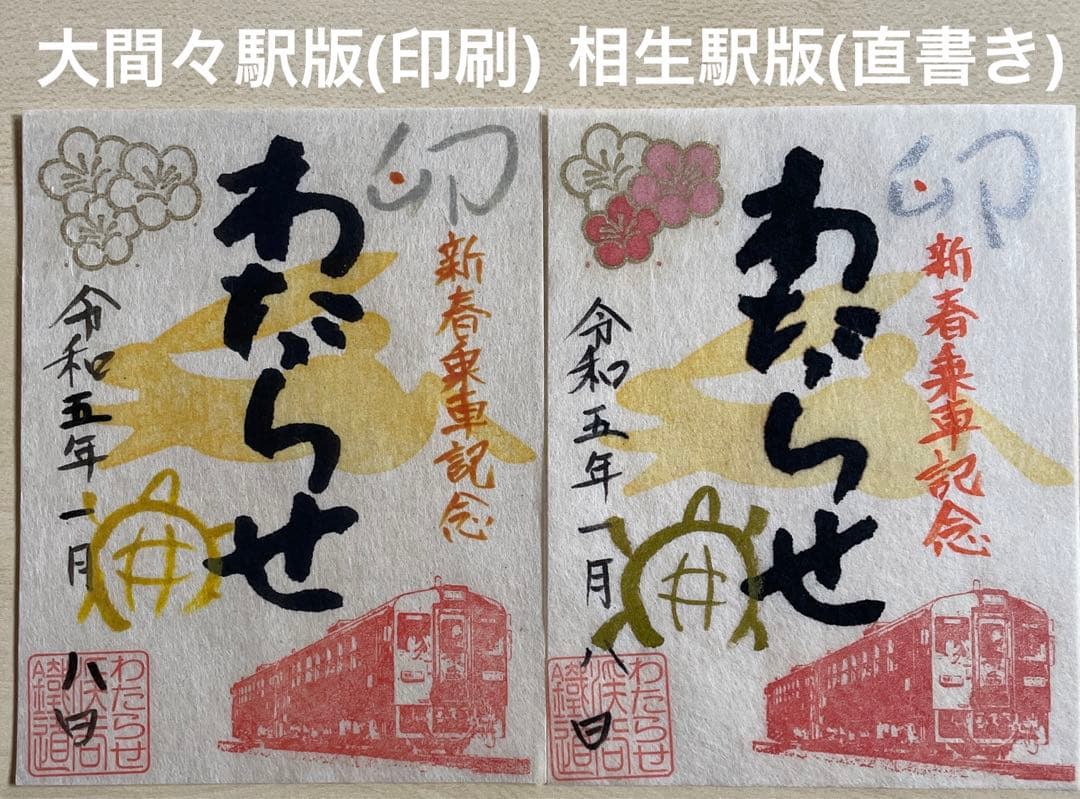 大間々駅版(印刷)
相生駅版(直書き)
卯
新春乗車記念
わたらせ
令和五年一月八日
井
わたらせ
渓谷
鐵道
卯
新春乗車記念
わたらせ
令和五年一月八日
井
わたらせ
渓谷
鐵道